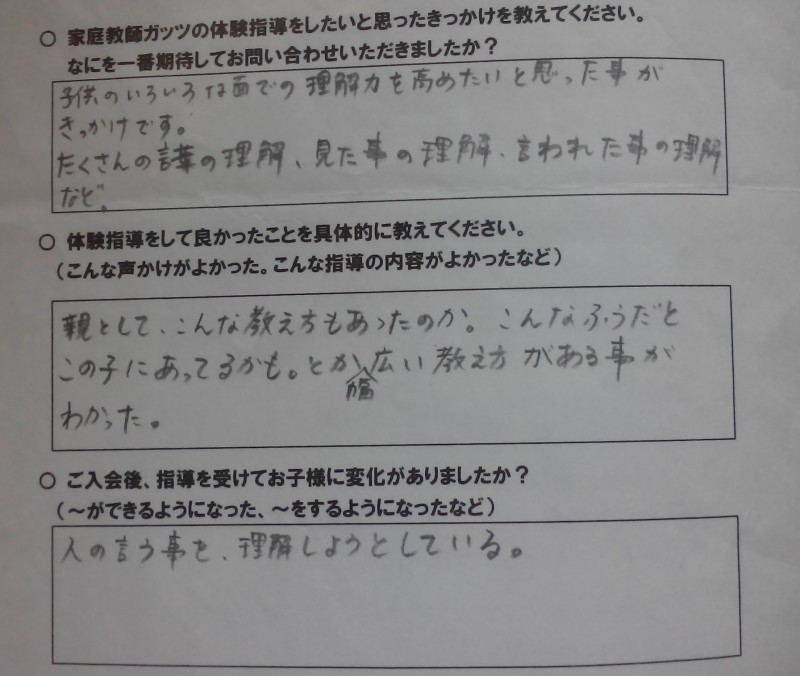 ○ 家庭教師ガッツの体験指導をしたいと思ったきっかけを教えてください。
なにを一番期待してお問い合わせいただきましたか？
子供のいろいろな面での理解力を高めたいと思った事が
きっかけです。
たくさんの言葉の理解、見た事の理解、言われた事の理解
など。
○ 体験指導をして良かったことを具体的に教えてください。
（こんな声かけがよかった。こんな指導の内容がよかったなど）
親として、こんな教え方もあったのか。こんなふうだと
この子にあってるかも。とか幅広い教え方がある事が
わかった。
○ ご入会後、指導を受けてお子様に変化がありましたか？
（～ができるようになった、～をするようになったなど）
人の言う事を、理解しようとしている。